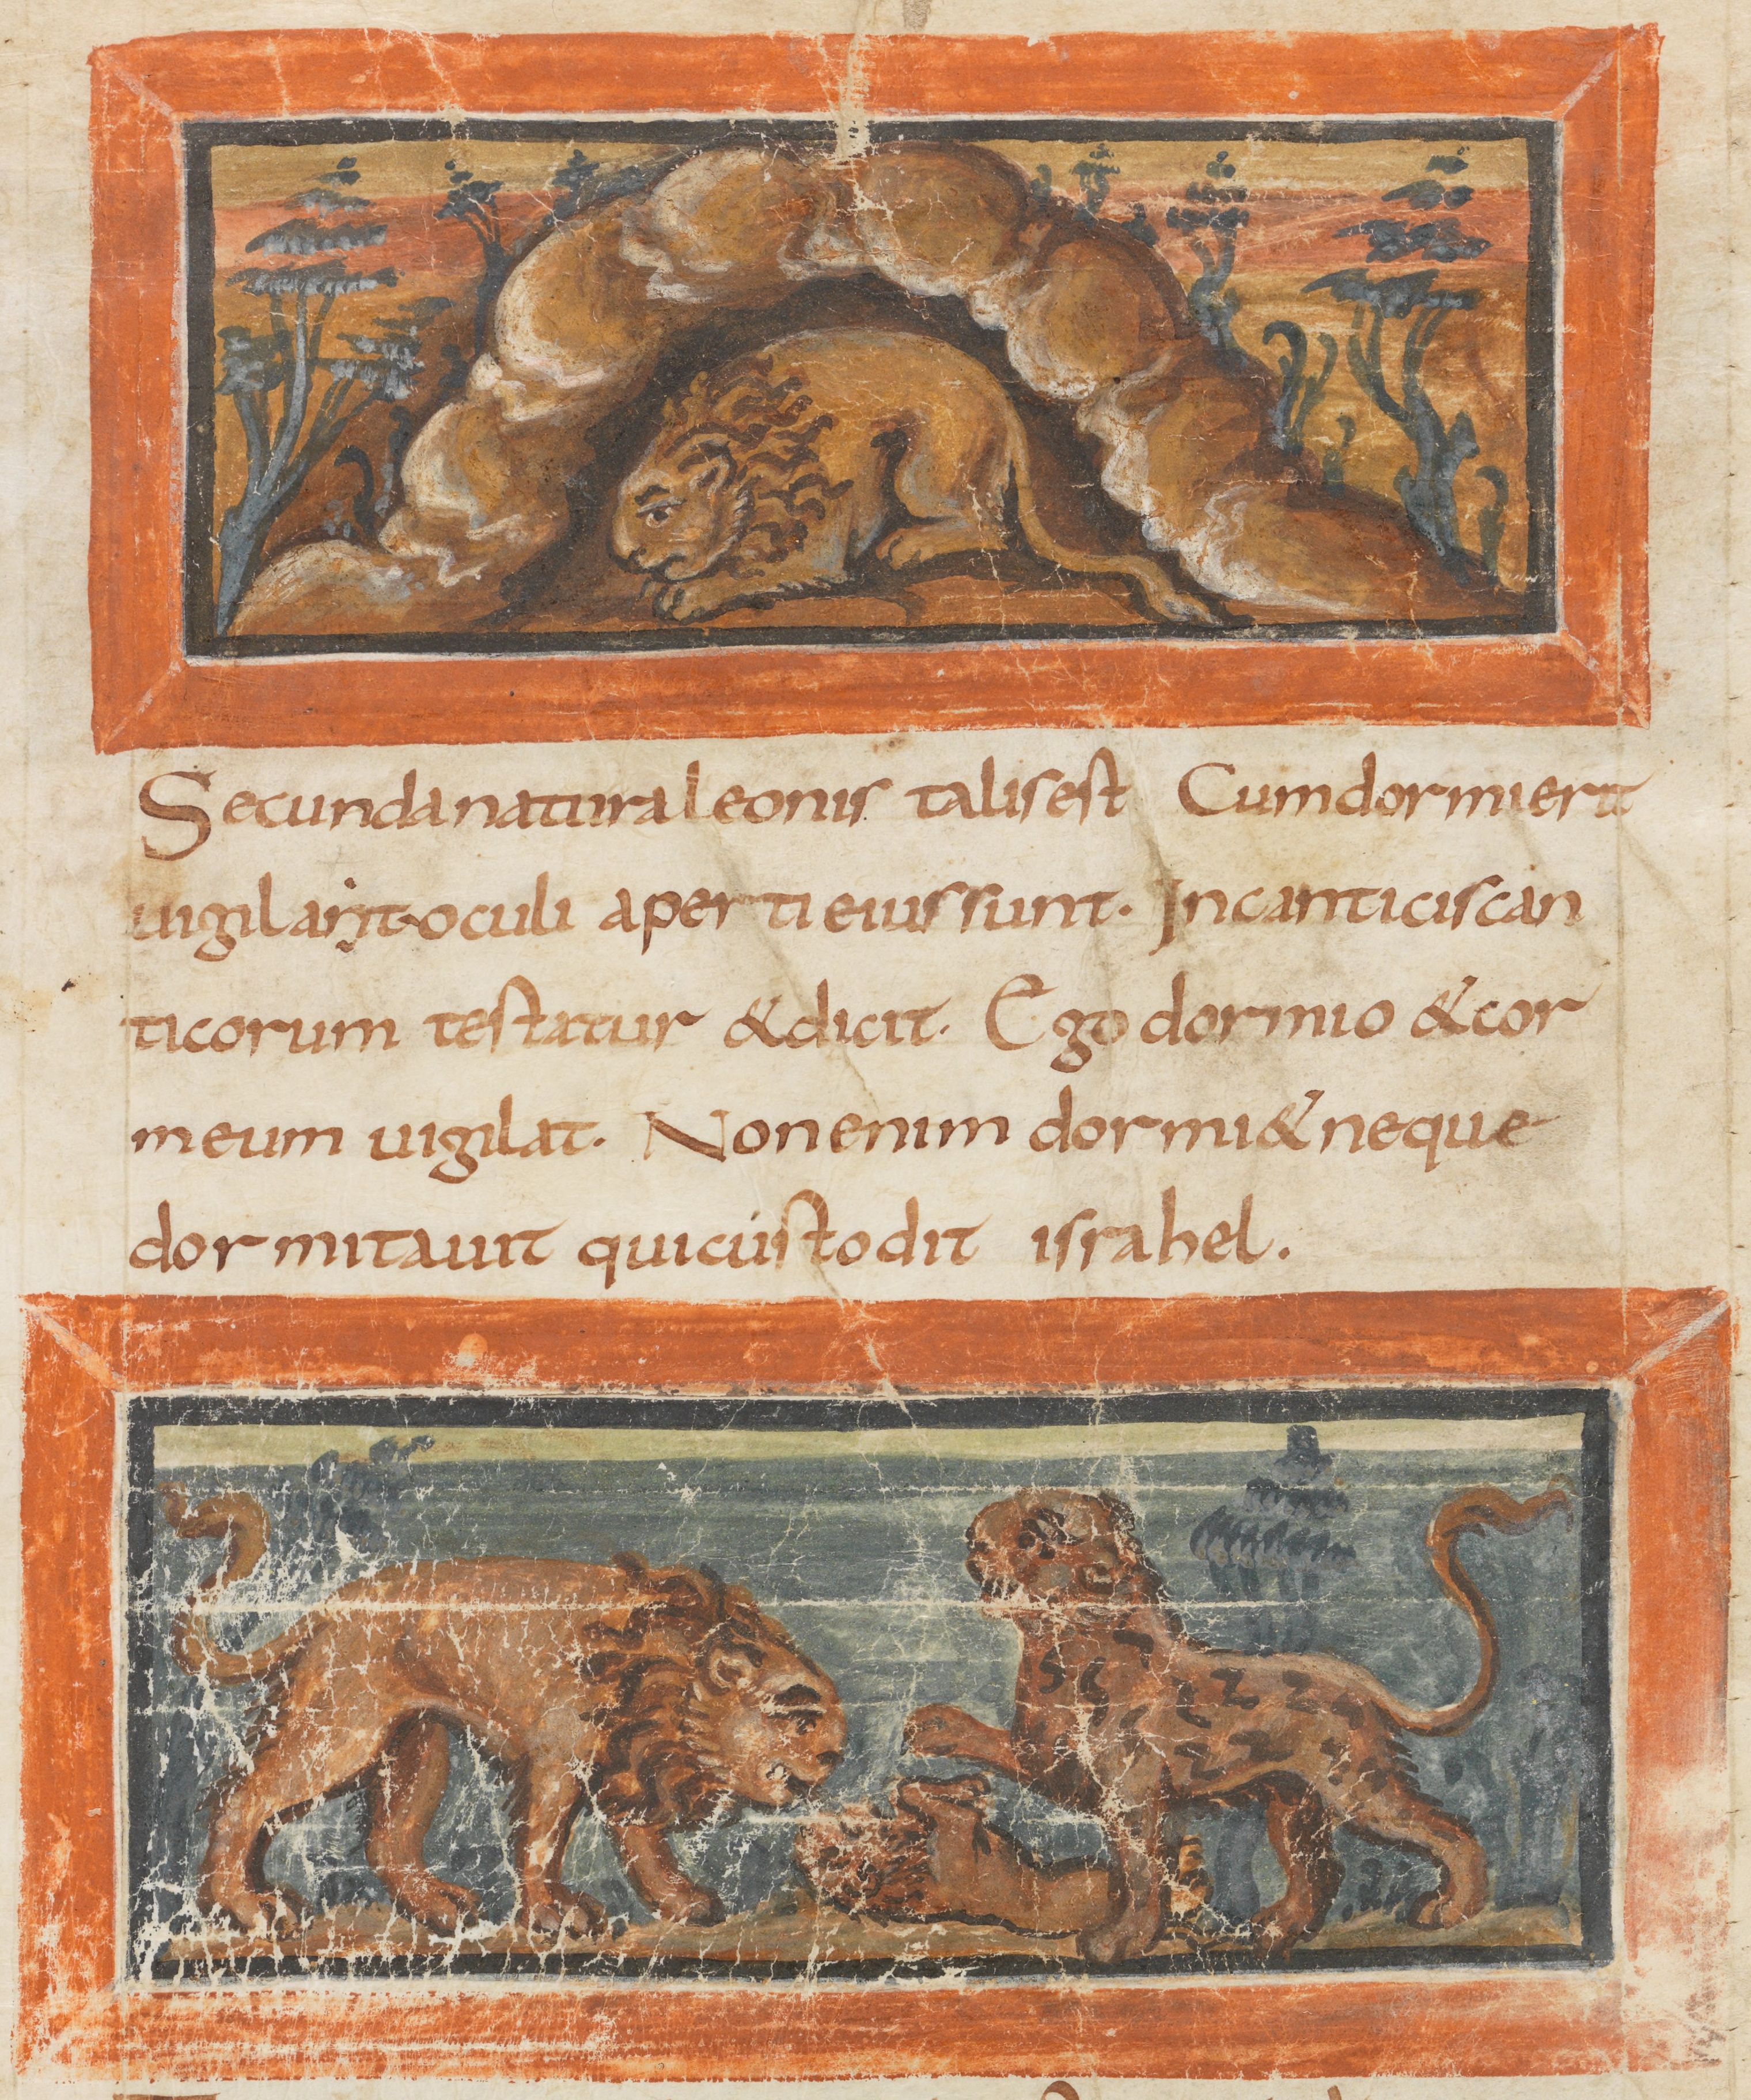 Secunda natura leonis talis est Cum dormiert
uigilant oculi aperti eius sunt. In canticis can
ticorum testatur & dicit. Ego dormio & cor
meum uigilat. Non enim dormi& neque
dormitauit qui custodit israhel.